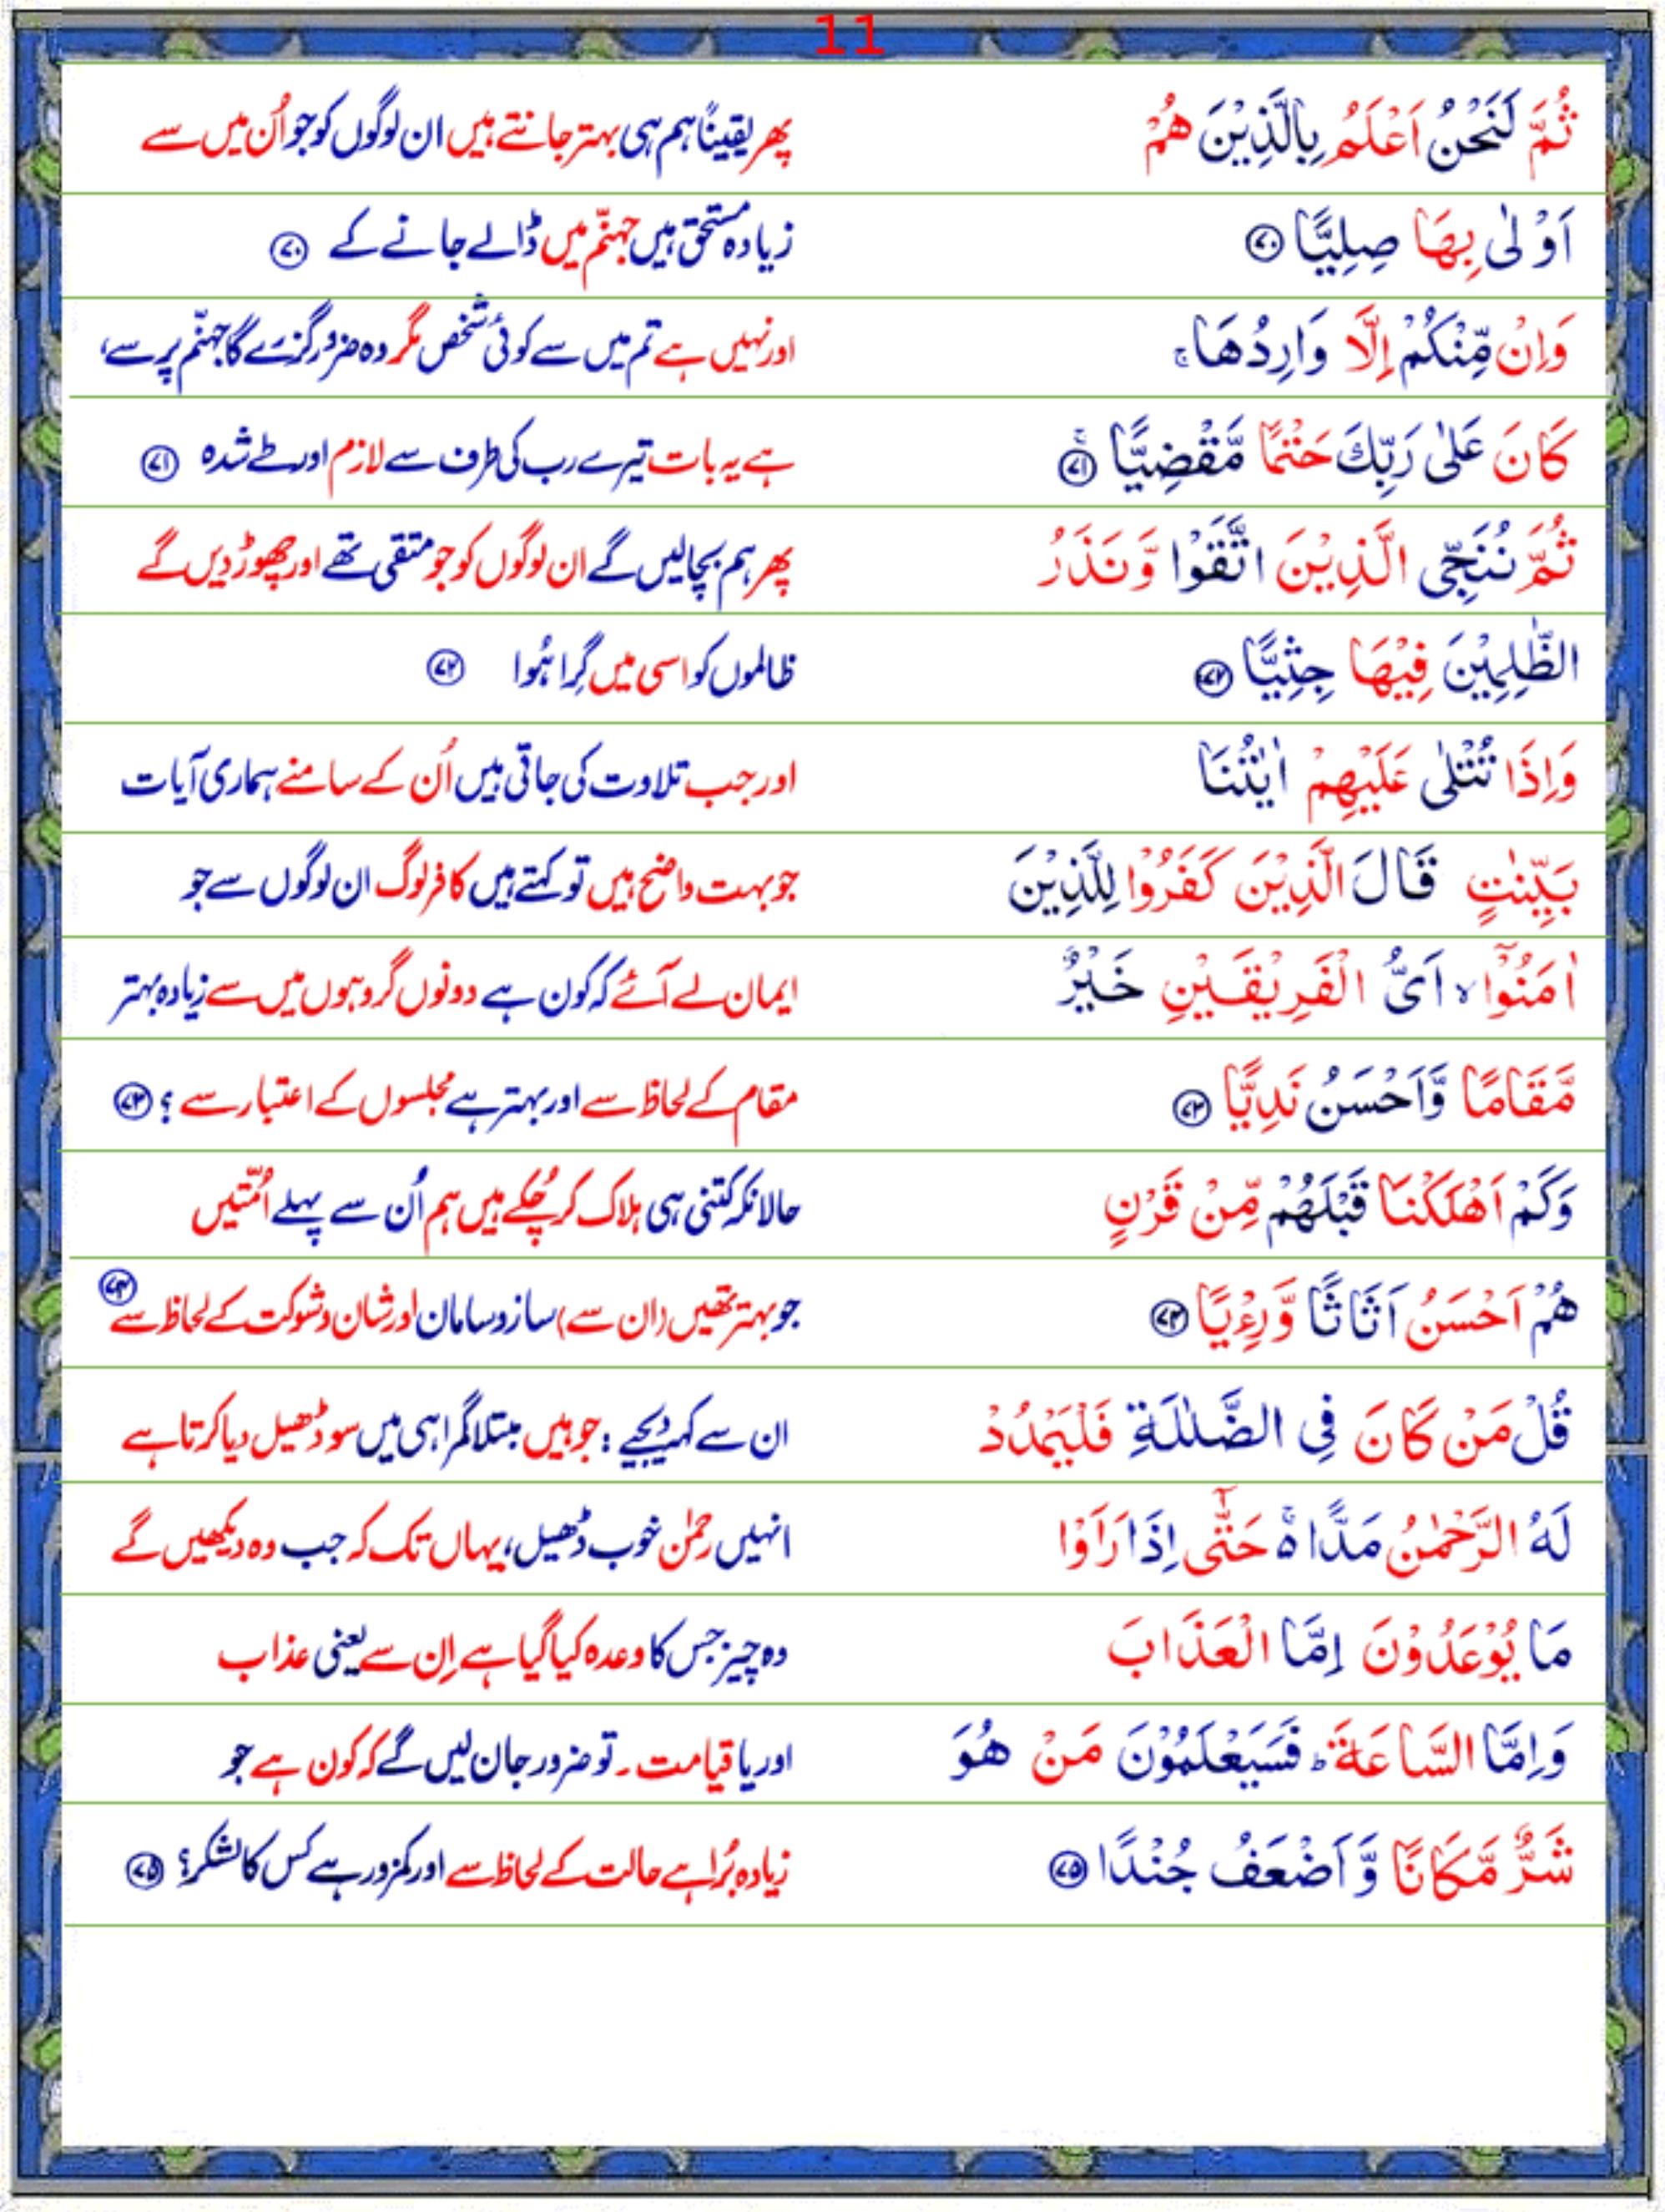 11
ثُمَّ لَنَحْنُ اَعْلَمُ بِالَّذِيْنَ هُمْ پھر یقیناً ہم ہی بہتر جانتے ہیں ان لوگوں کو جو اُن میں سے
اَوْلٰى بِهَا صِلِيًّا ۷۰ زیادہ مستحق ہیں جہنّم میں ڈالے جانے کے ۷۰
وَاِنْ مِّنْكُمْ اِلَّا وَارِدُهَا ۚ اور نہیں ہے تم میں سے کوئی شخص مگر وہ ضرور گزرے گا جہنّم پر سے،
كَانَ عَلٰى رَبِّكَ حَتْمًا مَّقْضِيًّا ۚ ۷۱ ہے یہ بات تیرے رب کی طرف سے لازم اور طے شدہ ۷۱
ثُمَّ نُنَجِّى الَّذِيْنَ اتَّقَوْا وَّنَذَرُ پھر ہم بچالیں گے ان لوگوں کو جو متقی تھے اور چھوڑ دیں گے
الظّٰلِمِيْنَ فِيْهَا جِثِيًّا ۷۲ ظالموں کو اسی میں گِرا ہُوا ۷۲
وَاِذَا تُتْلٰى عَلَيْهِمْ اٰيٰتُنَا اور جب تلاوت کی جاتی ہیں اُن کے سامنے ہماری آیات
بَيِّنٰتٍ قَالَ الَّذِيْنَ كَفَرُوْا لِلَّذِيْنَ جو بہت واضح ہیں تو کہتے ہیں کافر لوگ ان لوگوں سے جو
اٰمَنُوْۤا ۙ اَىُّ الْفَرِيْقَيْنِ خَيْرٌ ایمان لے آئے کہ کون ہے دونوں گروہوں میں سے زیادہ بہتر
مَّقَامًا وَّاَحْسَنُ نَدِيًّا ۷۳ مقام کے لحاظ سے اور بہتر ہے مجلسوں کے اعتبار سے ؟ ۷۳
وَكَمْ اَهْلَكْنَا قَبْلَهُمْ مِّنْ قَرْنٍ حالانکہ کتنی ہی ہلاک کر چُکے ہیں ہم اُن سے پہلے اُمّتیں
هُمْ اَحْسَنُ اَثَاثًا وَّرِءْيًا ۷۴ جو بہتر تھیں (ان سے) ساز و سامان اور شان و شوکت کے لحاظ سے ۷۴
قُلْ مَنْ كَانَ فِى الضَّلٰلَةِ فَلْيَمْدُدْ ان سے کہہ دیجیے : جو ہیں مبتلا گمراہی میں سو ڈھیل دیا کرتا ہے
لَهُ الرَّحْمٰنُ مَدًّا ۚ۬ حَتّٰۤى اِذَا رَاَوْا انہیں رحمٰن خوب ڈھیل، یہاں تک کہ جب وہ دیکھیں گے
مَا يُوْعَدُوْنَ اِمَّا الْعَذَابَ وہ چیز جس کا وعدہ کیا گیا ہے اِن سے یعنی عذاب
وَاِمَّا السَّاعَةَ ؕ فَسَيَعْلَمُوْنَ مَنْ هُوَ اور یا قیامت ۔ تو ضرور جان لیں گے کہ کون ہے جو
شَرٌّ مَّكَانًا وَّاَضْعَفُ جُنْدًا ۷۵ زیادہ بُرا ہے حالت کے لحاظ سے اور کمزور ہے کس کا لشکر؟ ۷۵